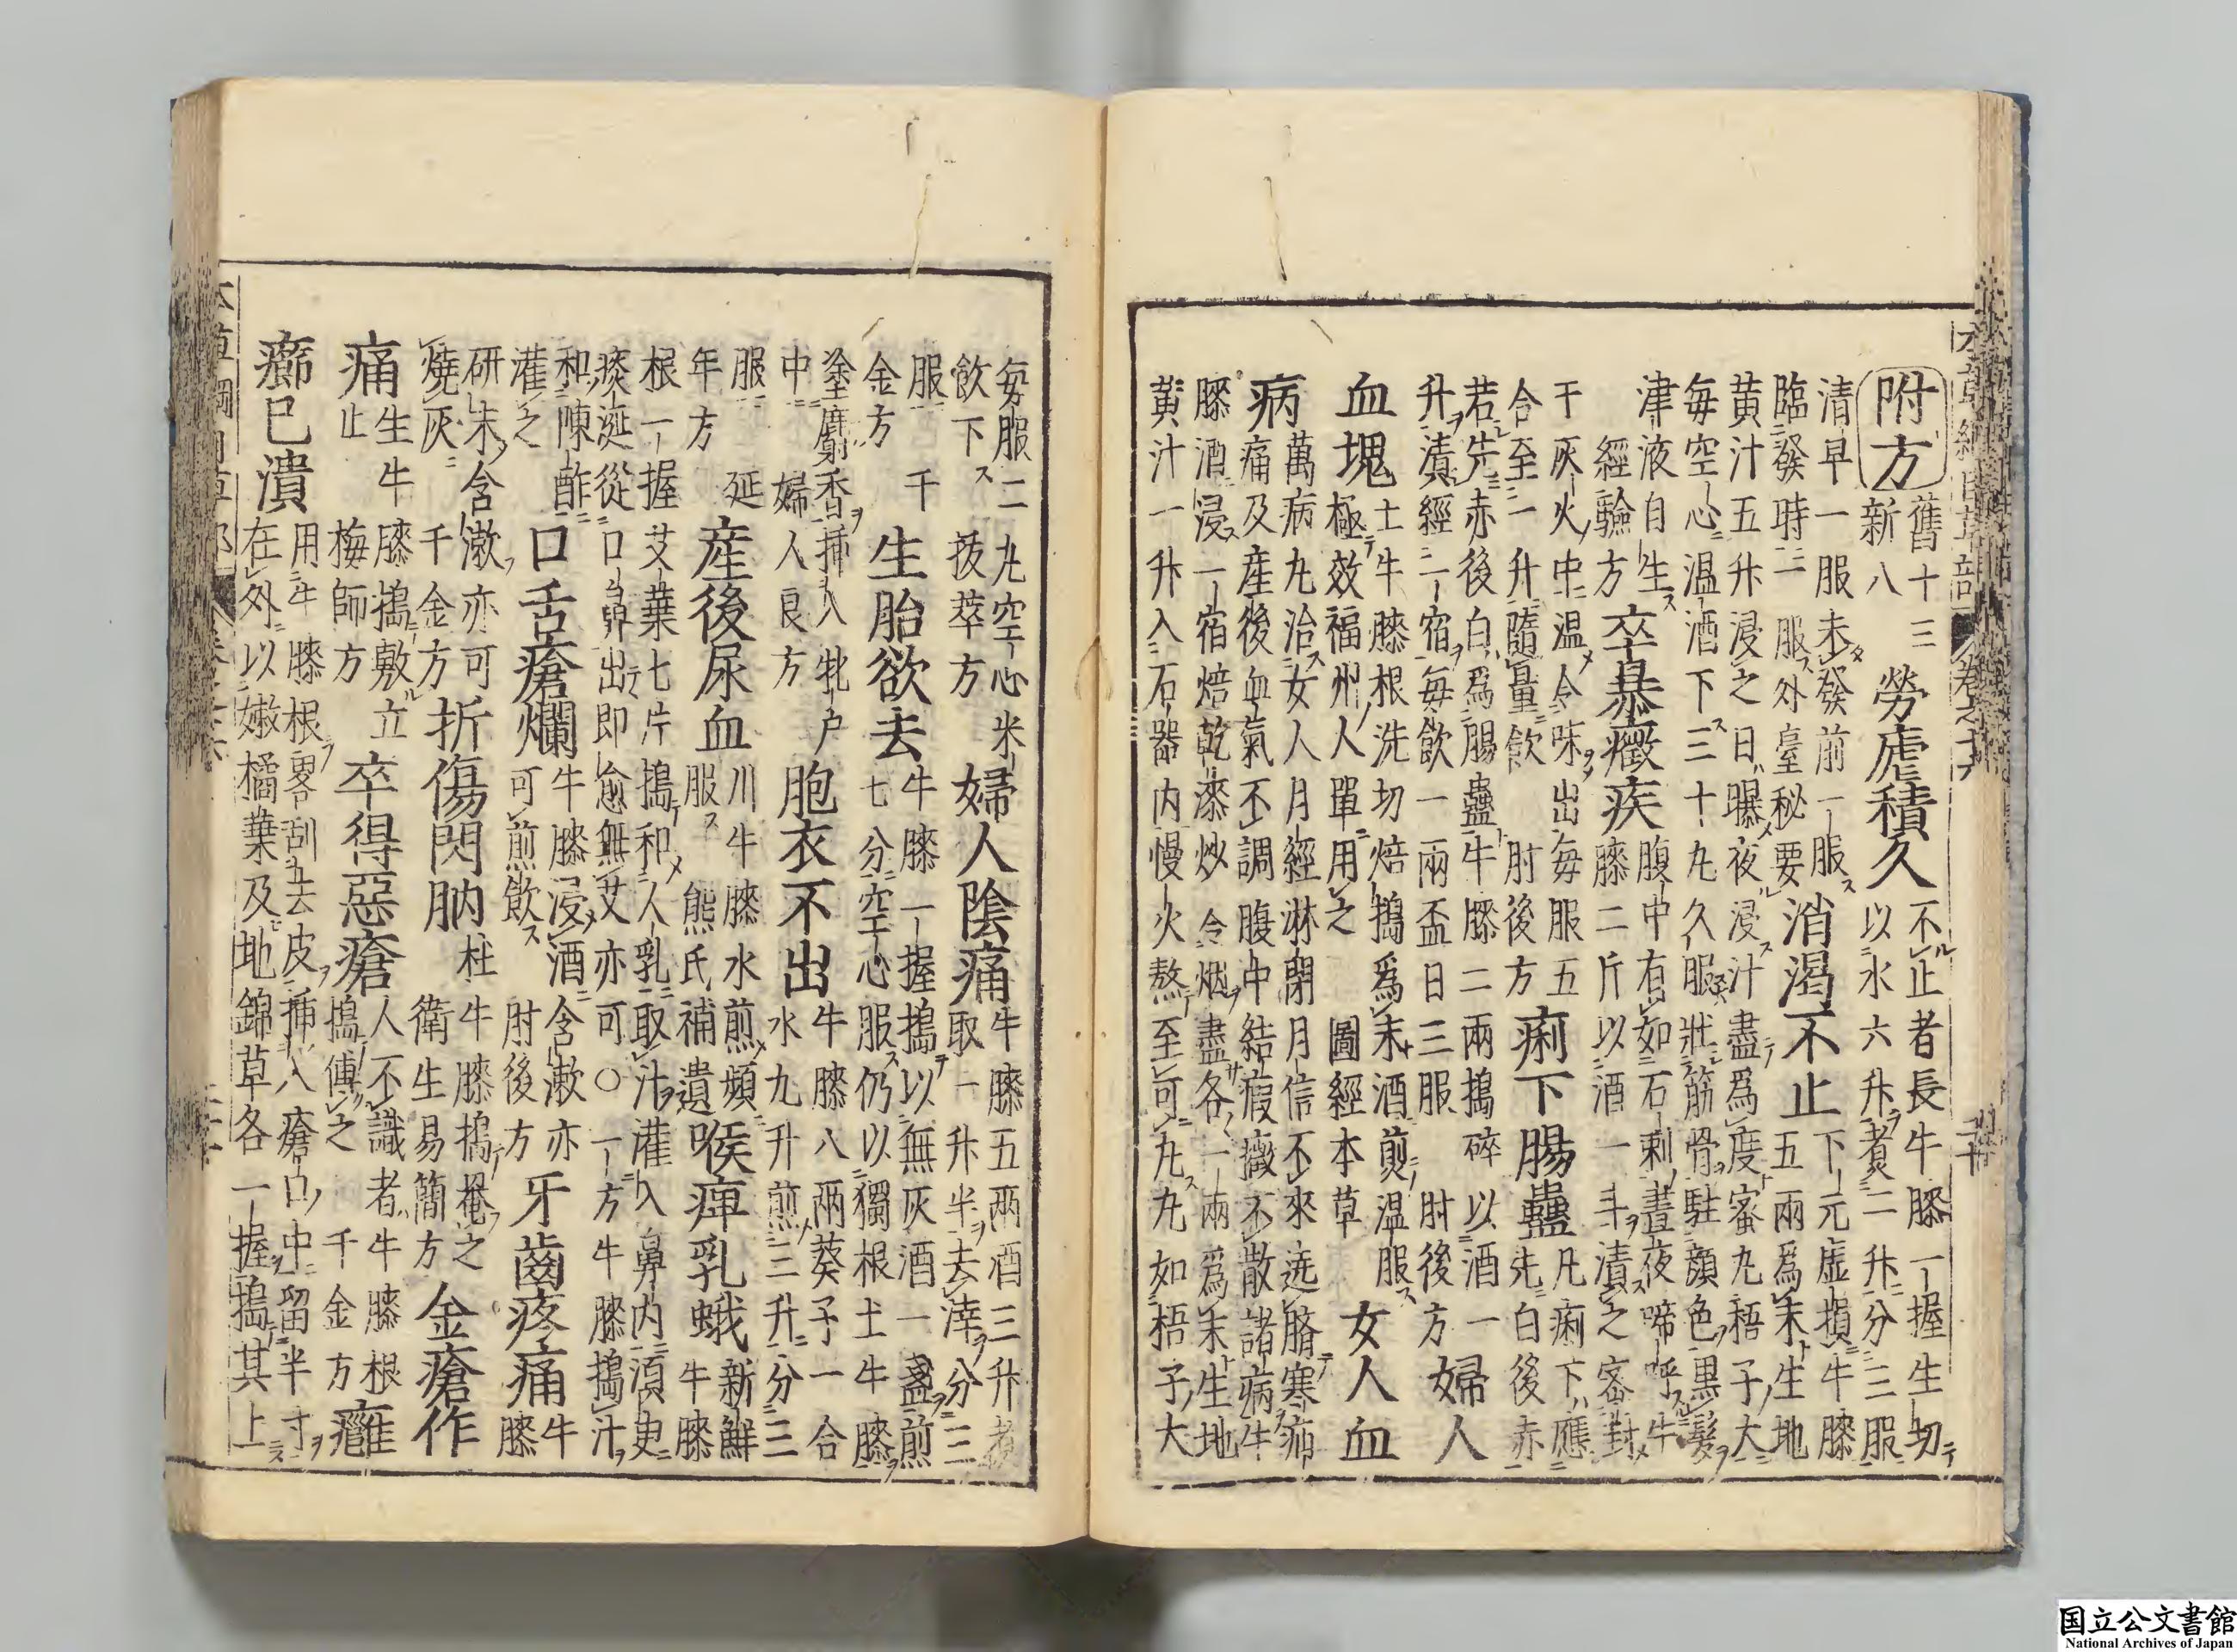 本草綱目草部 卷之十六 二十
附方 舊十三新八 勞瘧積久 不止者長牛膝一握生切以水六升煮二升分三服
清早一服未發前一服臨發時一服外臺秘要 消渴不止 下元虛損牛膝五兩爲末生地
黃汁五升浸之日曝夜浸汁盡爲度蜜丸梧子大每空心温酒下三十丸久服壯筋骨駐顔色黒髮
津液自生經驗方 卒暴癥疾 腹中有如石刺晝夜啼呼牛膝二斤以酒一斗漬之密封
于灰火中温令味出每服五合至一升隨量飲肘後方 痢下腸蠱 凡痢下應先白後赤
若先赤後白爲腸蠱牛膝二兩搗碎以酒一升漬經一宿每飲一兩盃日三服肘後方 婦人
血塊 土牛膝根洗切焙搗爲末酒煎温服極效福州人單用之圖經本草 女人血
病 萬病丸治女人月經淋閉月信不來遶臍寒疝痛及產後血氣不調腹中結瘕癥不散諸病牛
膝酒浸一宿焙乾漆炒令烟盡各一兩爲末生地黃汁一升入石器内慢火熬至可丸丸如梧子大
每服二丸空心米飲下拔萃方 婦人陰痛 牛膝五兩酒三升煮取一升半去滓分三
服千金方 生胎欲去 牛膝一握搗以無灰酒一盞煎七分空心服仍以獨根土牛膝
塗麝香插入牝户中婦人良方 胞衣不出 牛膝八兩葵子一合水九升煎三升分三
服延年方 産後尿血 川牛膝水煎頻服熊氏補遺 喉痺乳蛾 新鮮牛膝
根一握艾葉七片搗和人乳取汁灌入鼻内須臾痰涎從口鼻出即愈無艾亦可〇一方牛膝搗汁
和陳酢灌之 口舌瘡爛 牛膝浸酒含漱亦可煎飲肘後方 牙齒疼痛 牛膝
研末含漱亦可燒灰千金方 折傷閃肭 杜牛膝搗罨之衛生易簡方 金瘡作
痛 生牛膝搗敷立止梅師方 卒得惡瘡 人不識者牛膝根搗傅之千金方 癰
癤已潰 用牛膝根畧刮去皮插入瘡口中留半寸在外以嫩橘葉及地錦草各一握搗其上
国立公文書館
National Archives of Japan